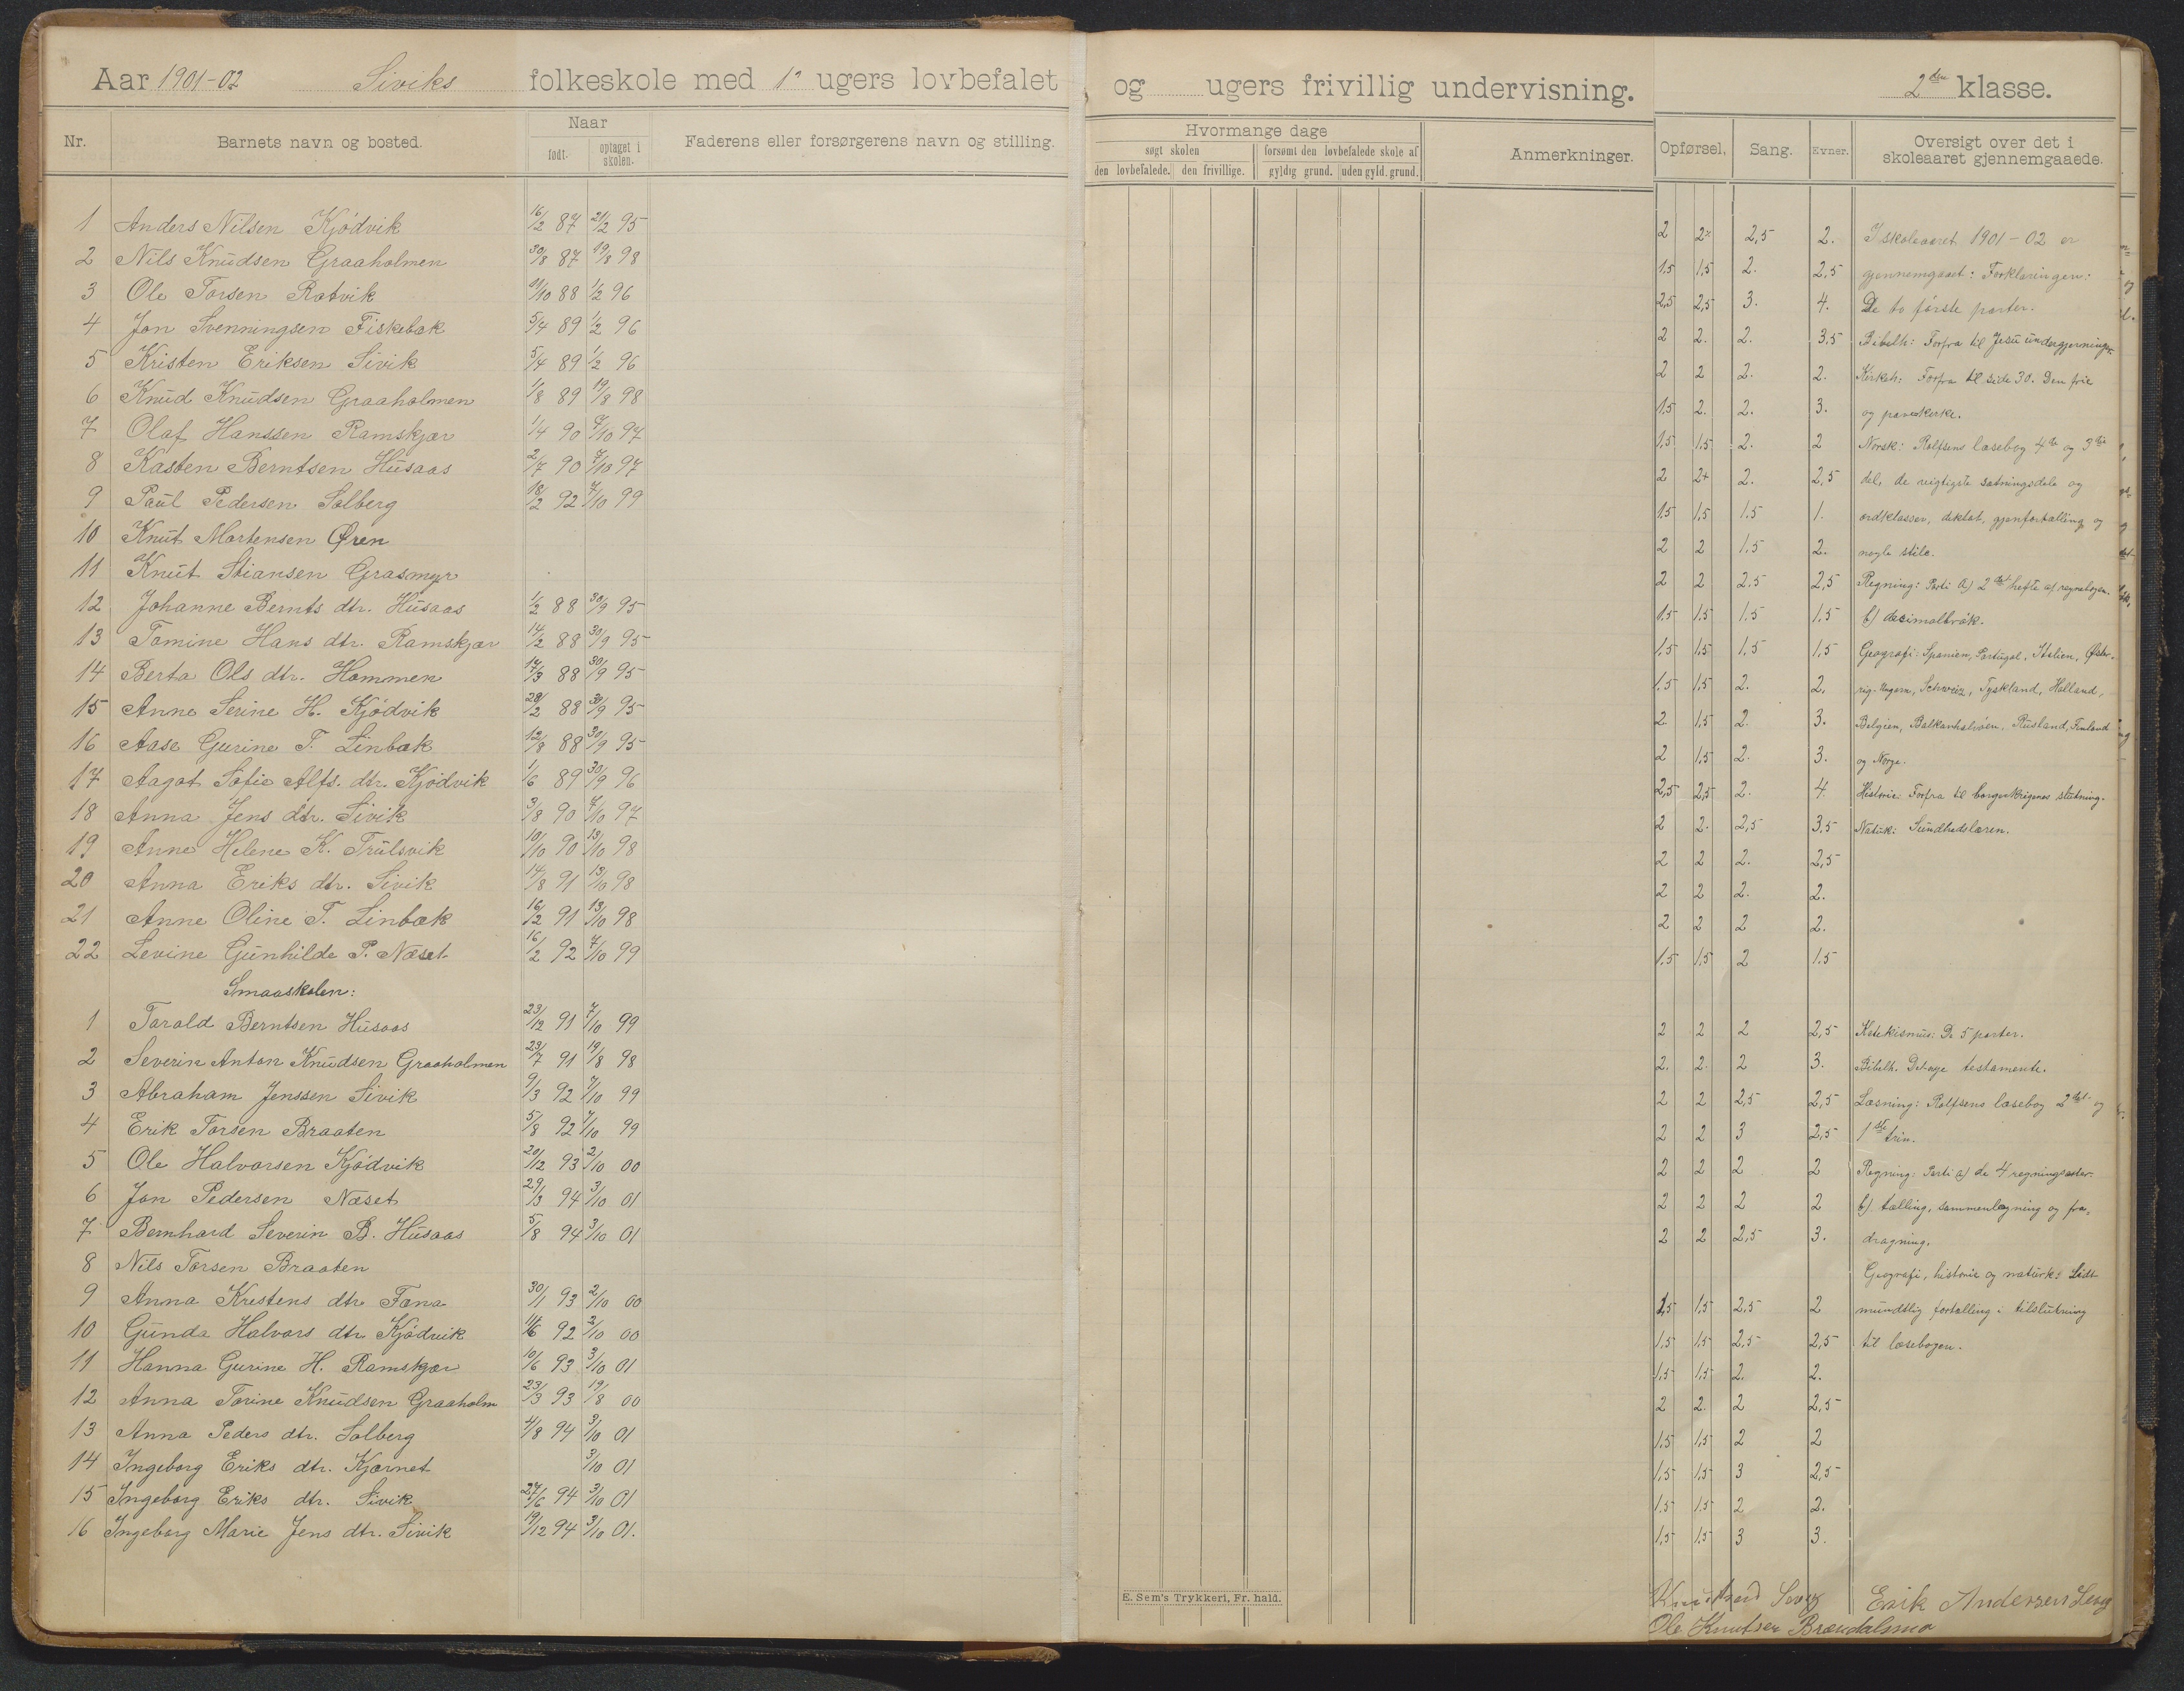 Aar 1901-02 Siviks folkeskole med 12 ugers lovbefalet og ugers frivillig undervisning. 2den klasse.
Nr. Barnets navn og bosted. Naar født. optaget i skolen. Faderens eller forsørgerens navn og stilling. Hvormange dage søgt skolen den lovbefalede. den frivillige. forsømt den lovbefalede skole af gyldig grund. uden gyld. grund. Anmerkninger. Opførsel. Sang. Evner. Oversigt over det i skoleaaret gjennemgaaede.
1 Anders Nilsen Kjødvik 16/2 87 21/2 95 2 2 2,5 2. I skoleaaret 1901-02 er
2 Nils Knudsen Graaholmen 30/8 87 19/8 98 1.5 1,5 2. 2,5 gjennemgaaet: Forklaringen:
3 Ole Torsen Rotvik 88 1/2 96 2,5 2,5 3. 4. De to første parter.
4 Jon Svenningsen Fiskebæk 5/4 89 1/2 96 2 2. 2. 3.5 Bibelh: Forfra til Jesu undergjerninger.
5 Kristen Eriksen Sivik 5/4 89 1/2 96 2 2 2. 2. Kirkeh: Forfra til side 30. Den frie
6 Knud Knudsen Graaholmen 1/8 89 19/8 98 1.5 2. 2. 3. og pavekirke.
7 Olaf Hanssen Ramskjær 1/4 90 7/10 97 1.5 1,5 2. 2 Norsk: Rolfsens læsebog 4de og 3die
8 Kasten Berntsen Husaas 2/7 90 7/10 97 2 2+ 2. 2,5 del, de vigtigste sætningsdele og
9 Paul Pedersen Solberg 18/2 92 7/10 99 1.5 1,5 1.5 1. ordklasser, diktat, gjenfortælling og
10 Knut Mortensen Øren 2 2 1.5 2. nogle stile.
11 Knut Stiansen Grasmyr 2 2 2.5 2,5 Regning: Parti a) 2det hefte af regnebogen.
12 Johanne Bernts dtr. Husaas 1/2 88 30/9 95 1.5 1.5 1.5 1,5 b) decimalbrøk.
13 Tomine Hans dtr. Ramskjær 14/2 88 30/9 95 1.5 1.5 1,5 1,5 Geografi: Spanien, Portugal, Italien, Øster-
14 Berta Ols dtr. Hommen 17/3 88 30/9 95 1.5 1,5 2. 2. rig-Ungarn, Schweiz, Tyskland, Holland,
15 Anne Serine H. Kjødvik 28/2 88 30/9 95 2. 1,5 2. 3. Belgien, Balkanhalvøen, Rusland, Finland
16 Aase Gurine T. Linbæk 12/8 88 30/9 95 2 1,5 2. 3. og Norge.
17 Aagot Sofie Alfs. dtr. Kjødvik 1/6 89 30/9 96 2,5 2,5 2. 4 Historie: Forfra til borgerkrigenes slutning.
18 Anna Jens dtr. Sivik 3/8 90 7/10 97 2 2. 2,5 3,5 Naturk: Sundhedslæren.
19 Anne Helene K. Trulsvik 10/10 90 13/10 98 2 2 2. 2,5
20 Anna Eriks dtr. Sivik 14/8 91 13/10 98 2 2 2. 2.
21 Anne Oline T. Linbæk 16/2 91 13/10 98 2 2 2 2.
22 Levine Gunhilde P. Næset 16/2 92 7/10 99 1.5 1,5 2 1.5
Smaaskolen:
1 Torald Berntsen Husaas 23/12 91 7/10 99 2 2 2 2,5 Katekismus: De 5 parter.
2 Severin Anton Knudsen Graaholmen 23/7 91 19/8 98 2. 2. 2 3. Bibelh. Det nye testamente.
3 Abraham Jenssen Sivik 9/3 92 7/10 99 2 2 2,5 2,5 Læsning: Rolfsens læsebog 2det og
4 Erik Torsen Braaten 5/8 92 7/10 99 2 2 3 2,5 1ste trin.
5 Ole Halvorsen Kjødvik 20/12 93 2/10 00 2 2 2 2 Regning: Parti a) de 4 regningsarter.
6 Jon Pedersen Næset 29/3 94 3/10 01 2 2 2 2 b). tælling, sammenlægning og fra-
7 Bernhard Severin B. Husaas 5/8 94 3/10 01 2 2 2,5 3. dragning.
8 Nils Torsen Braaten Geografi, historie og naturk: Lidt
9 Anna Kristens dtr Fona 30/1 93 2/10 00 1,5 1,5 2,5 2 mundtlig fortælling i tilslutning
10 Gunda Halvors dtr Kjødvik 92 2/10 00 1,5 1,5 2,5 2,5 til læsebogen.
11 Hanna Gurine H. Ramskjær 10/6 93 3/10 01 1,5 1,5 2. 2.
12 Anna Torine Knudsen Graaholm 23/3 93 19/8 00 2 2. 2 2,5
13 Anna Peders dtr. Solberg 4/8 94 3/10 01 1,5 1,5 2 2
14 Ingeborg Eriks dtr. Kjærnet 3/10 01 1,5 1,5 3 2,5
15 Ingeborg Eriks dtr. Sivik 27/6 94 3/10 01 1.5 1.5 2 2.
16 Ingeborg Marie Jens dtr. Sivik 19/12 94 3/10 01. 1,5 1,5 3 3.
E. Sem's Trykkeri, Fr. hald.
Erik Andersen
Ole Knutsen Brændalsmo